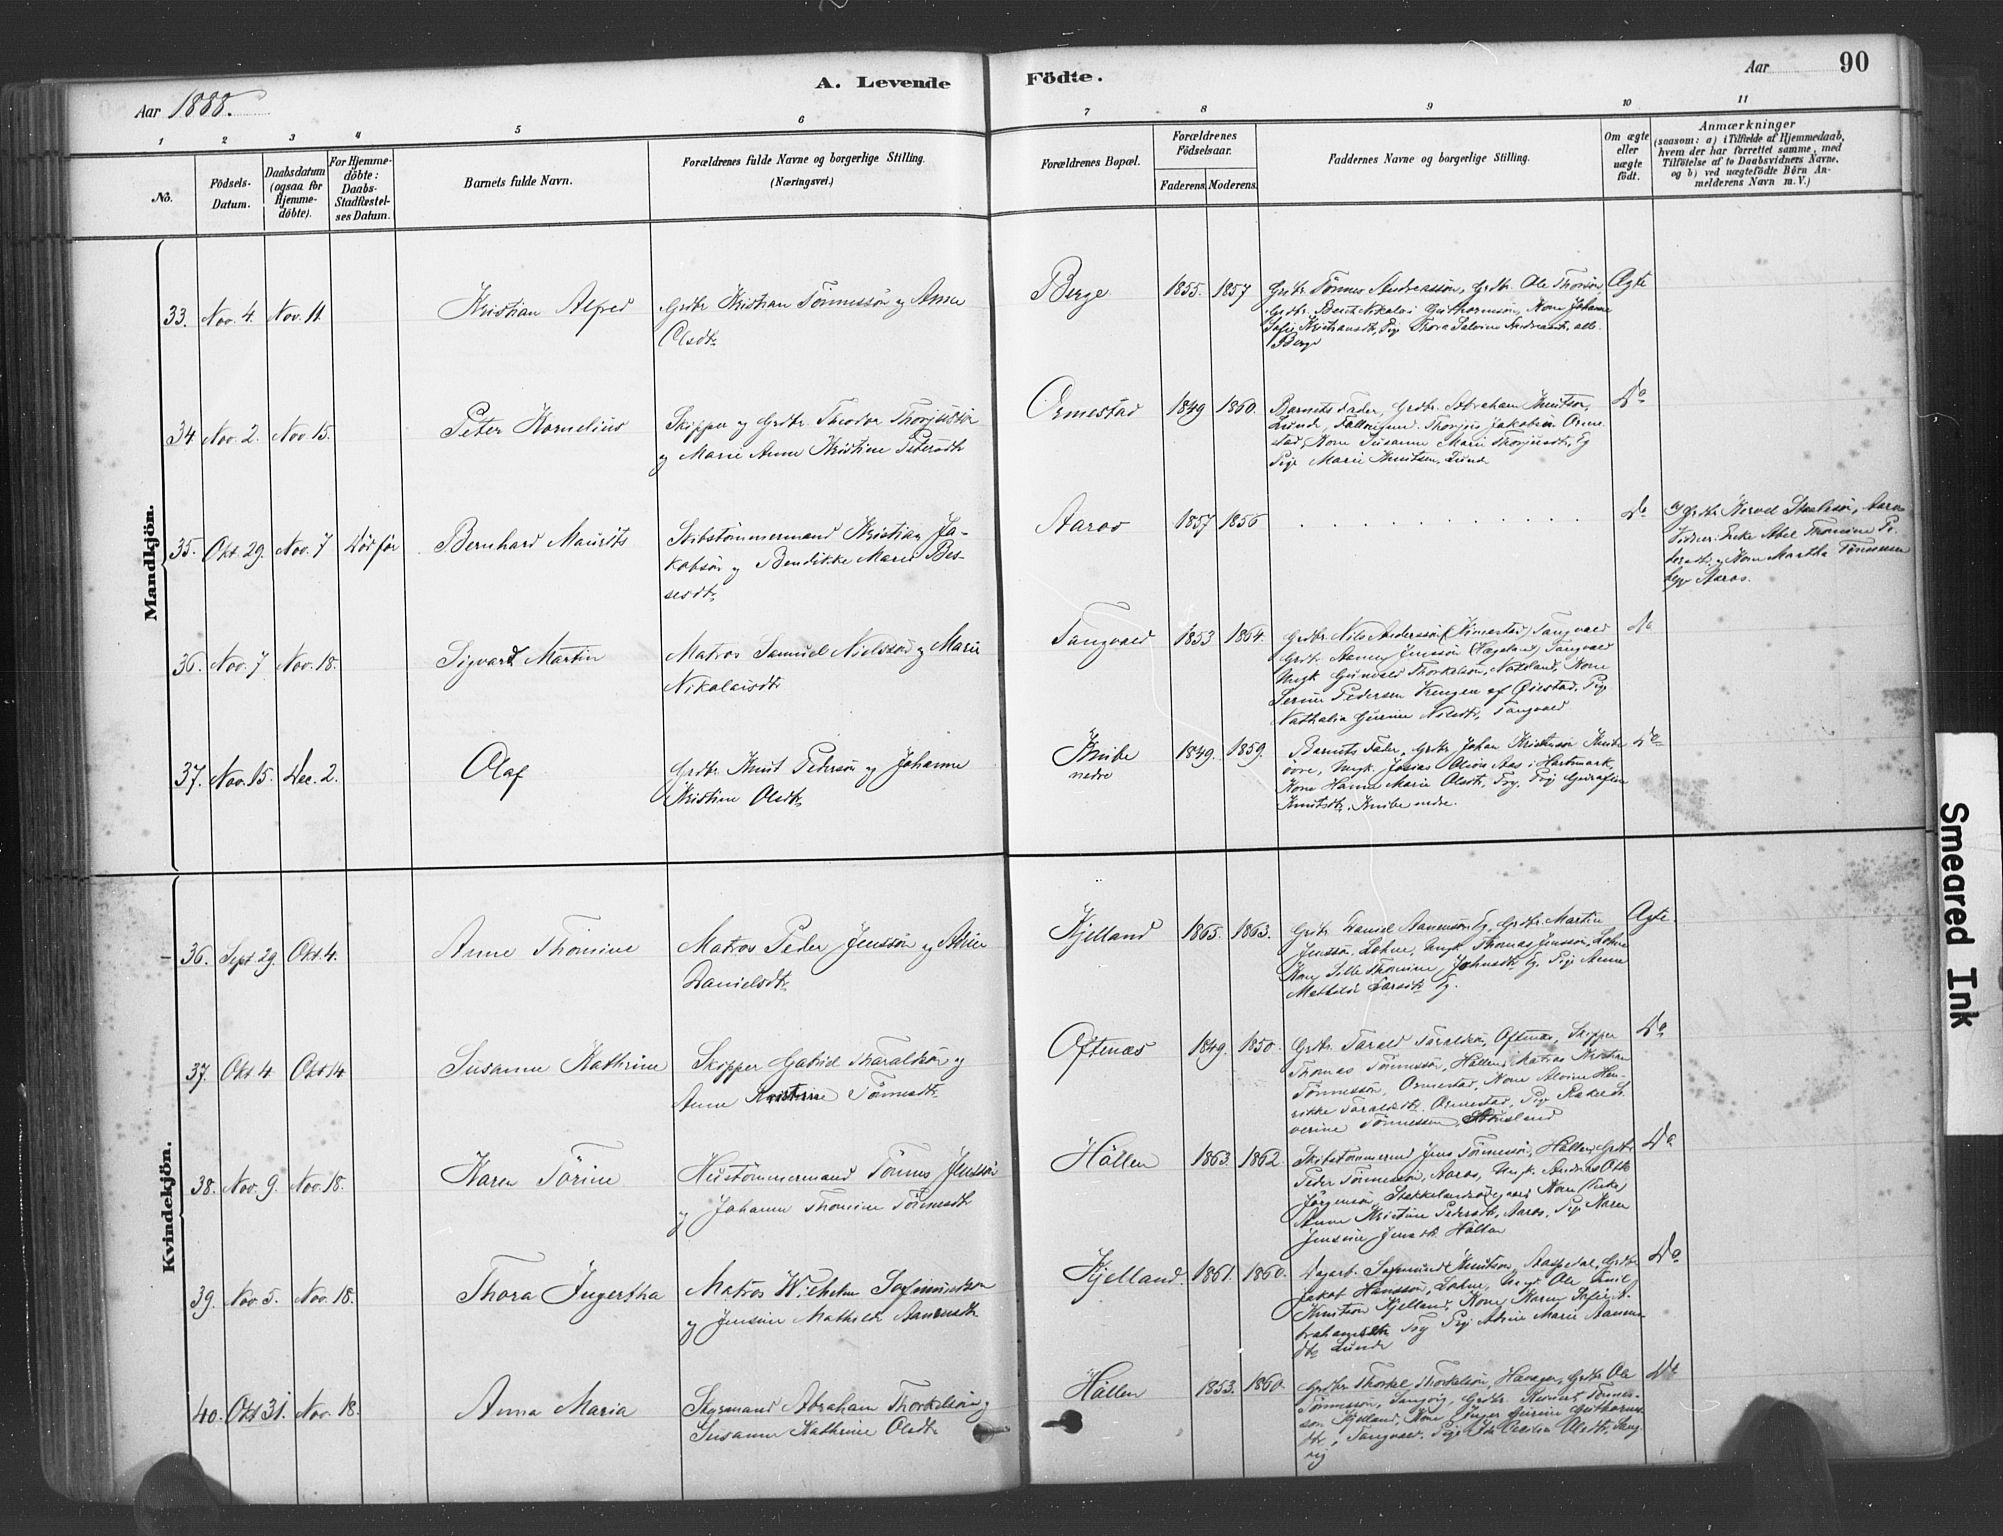 A. Levende Födte.
Aar 1888.
Aar 90
1 2 3 4 5 6 7 8 9 10 11
No.
Födsels-Datum.
Daabsdatum (ogsaa for Hjemme-döbte).
For Hjemme-döbte: Daabs-Stadfæstel-ses Datum.
Barnets fulde Navn.
Forældrenes fulde Navne og borgerlige Stilling.
(Næringsvei.)
Forældrenes Bopæl.
Forældrenes Födselsaar.
Faderens. Moderens.
Faddernes Navne og borgerlige Stilling.
Om ægte eller uægte født.
Anmærkninger
(saasom: a) i Tilfælde af Hjemmedaab,
hvem der har forrettet samme, med
Tilföielse af to Daabsvidners Navne,
og b) ved uægtefödte Börn An-
melderens Navn m. V.)
Mandkjön.
33. Nov. 4. Nov. 11. Kristian Alfred
Grdbr Kristian Tönnessön og Anna
Olsdtr
Berge 1855. 1857
Grdbr. Tönnes Andreassön, Grdbr. Ole Thorsön,
Grdbr. Bert Nikolai Guthormsön, Kone Johanne
Sofie Kristiansdt, Pig Thora Salvine Andreasdt, alle
Berge
Ægte
34 Nov. 2. Nov. 15. Peter Kornelius
Skipper og Grdbr. Theodor Thorjussön
og Marie Anne Kristine Petersdtr
Ormestad 1849 1860.
Barnets Fader, Grdbr. Abraham Knutsön,
Lunde, Thorjus Jakobsen Orme-
stad, Kone Susanne Marie Thorjusdt, Eg
Pige Marie Knutsen, Lunde
Do
35. Okt. 29. Nov. 7 Död för Bernhard Maurits
Skibstömmermand Kristian Ja-
kobsön og Bendikke Marie Bes-
sesdtr
Aaros 1857 1856
Do
Vidner: Enke Abel Thomine Pe-
dersdtr og Kone Martha Tönnesen
begge Aaros.
36. Nov. 7 Nov. 18. Sigvard Martin
Matros Samuel Nielssön og Marie
Nikolaisdtr
Tangvald 1853 1864.
Grdbr. Nils Anderssön (Kimestad) Tangvald
Grdbr. Aanen Jenssön (Hægeland) Tangvald
Ungk. Gundeld Thorkelsön, Nateland, Kone
Serine Pedersen Krengen af Öiestad, Pig
Nathalia Gurine Nilsdt, Tangvald
Do
37. Nov. 15. Dec. 2. Olaf
Grdbr. Knut Pedersön og Johanne
Kristine Olsdtr
Knibe nedre 1849. 1859.
Barnets Fader, Grdbr Johan Kristensön Knibe
övre, Ungk. Josias Olsön Aas i Hartmark,
Kone Hanne Marie Olsdtr, Try, Pig Serafine
Knutsdtr, Knibe nedre.
Do
Kvindekjön.
36. Sept. 29. Okt. 4. Anne Thomine
Matros Peder Jenssön og Aline
Danielsdtr
Kjelland 1865. 1863.
Grdbr. Daniel Aanensön Eg, Grdbr. Martin
Jenssön, Lohne, Ungk. Thomas Jenssön, Lohne
Kone Sille Thomine Johnsdtr Eg. Pige Anne
Mathilde Larsdtr Eg.
Ægte.
37. Okt. 4 Okt. 14 Susanne Kathrine
Skipper Gabriel Tharaldsön og
Anne Kristine Tönnesdtr
Oftenæs 1849. 1850.
Grdbr. Tarald Taraldsön, Oftenæs, Skipper
Thomas Tönnessön, Höllen, Matros Kristian
Tönnessön, Ormestad, Kone Alvine Hen-
rikke Taraldsdtr. Ormestad, Pige Rakel Se-
verine Tönnessen,
Do
38. Nov. 9. Nov. 18. Karen Törine
Hustömmermand Tönnes Jenssön
og Johanne Thomine Tönnesdtr
Höllen 1863. 1862.
Skibstömmermd Jens Tönnessön, Höllen, Grdbr
Peder Tönnessön, Aaros, Ungk. Anders Olk
Jörgensön, Stokkelandsödegaard, Kone (Enke)
Anne Kristine Pedersdt, Aaros, Pige Karen
Jensine Jensdt. Höllen
Do
39. Nov. 5. Nov. 18. Thora Ingertha
Matros Wilhelm Sagmundsön
og Jensine Mathilde Aanensdtr
Kjelland 1861. 1860.
Dagarb. Sagmund Knutson, Aaspedal, Grdbr
Jakob Hanssön, Lohne, Ungk. Ole Emil
Knutson Kjelland, Kone Karen Sofie A-
brahamsdtr Try Pige Aline Marie Aanens-
dtr Lunde
Do
40. Okt 31. Nov. 18. Anna Maria
Styrmand Abraham Thorkelsön og
Susanne Kathrine Olsdtr
Höllen 1853. 1860.
Grdbr Thorkel Thorkelsön, Grdbr. Ole
Tönnessön, Langvig, Grdbr. Reinert Tönnes-
son Kjelland, Kone Inger Gurine Guthorms-
dtr, Tangvald. Pige Ida Cecilia Olsdtr, Lang-
vig
Do
Smeared Ink